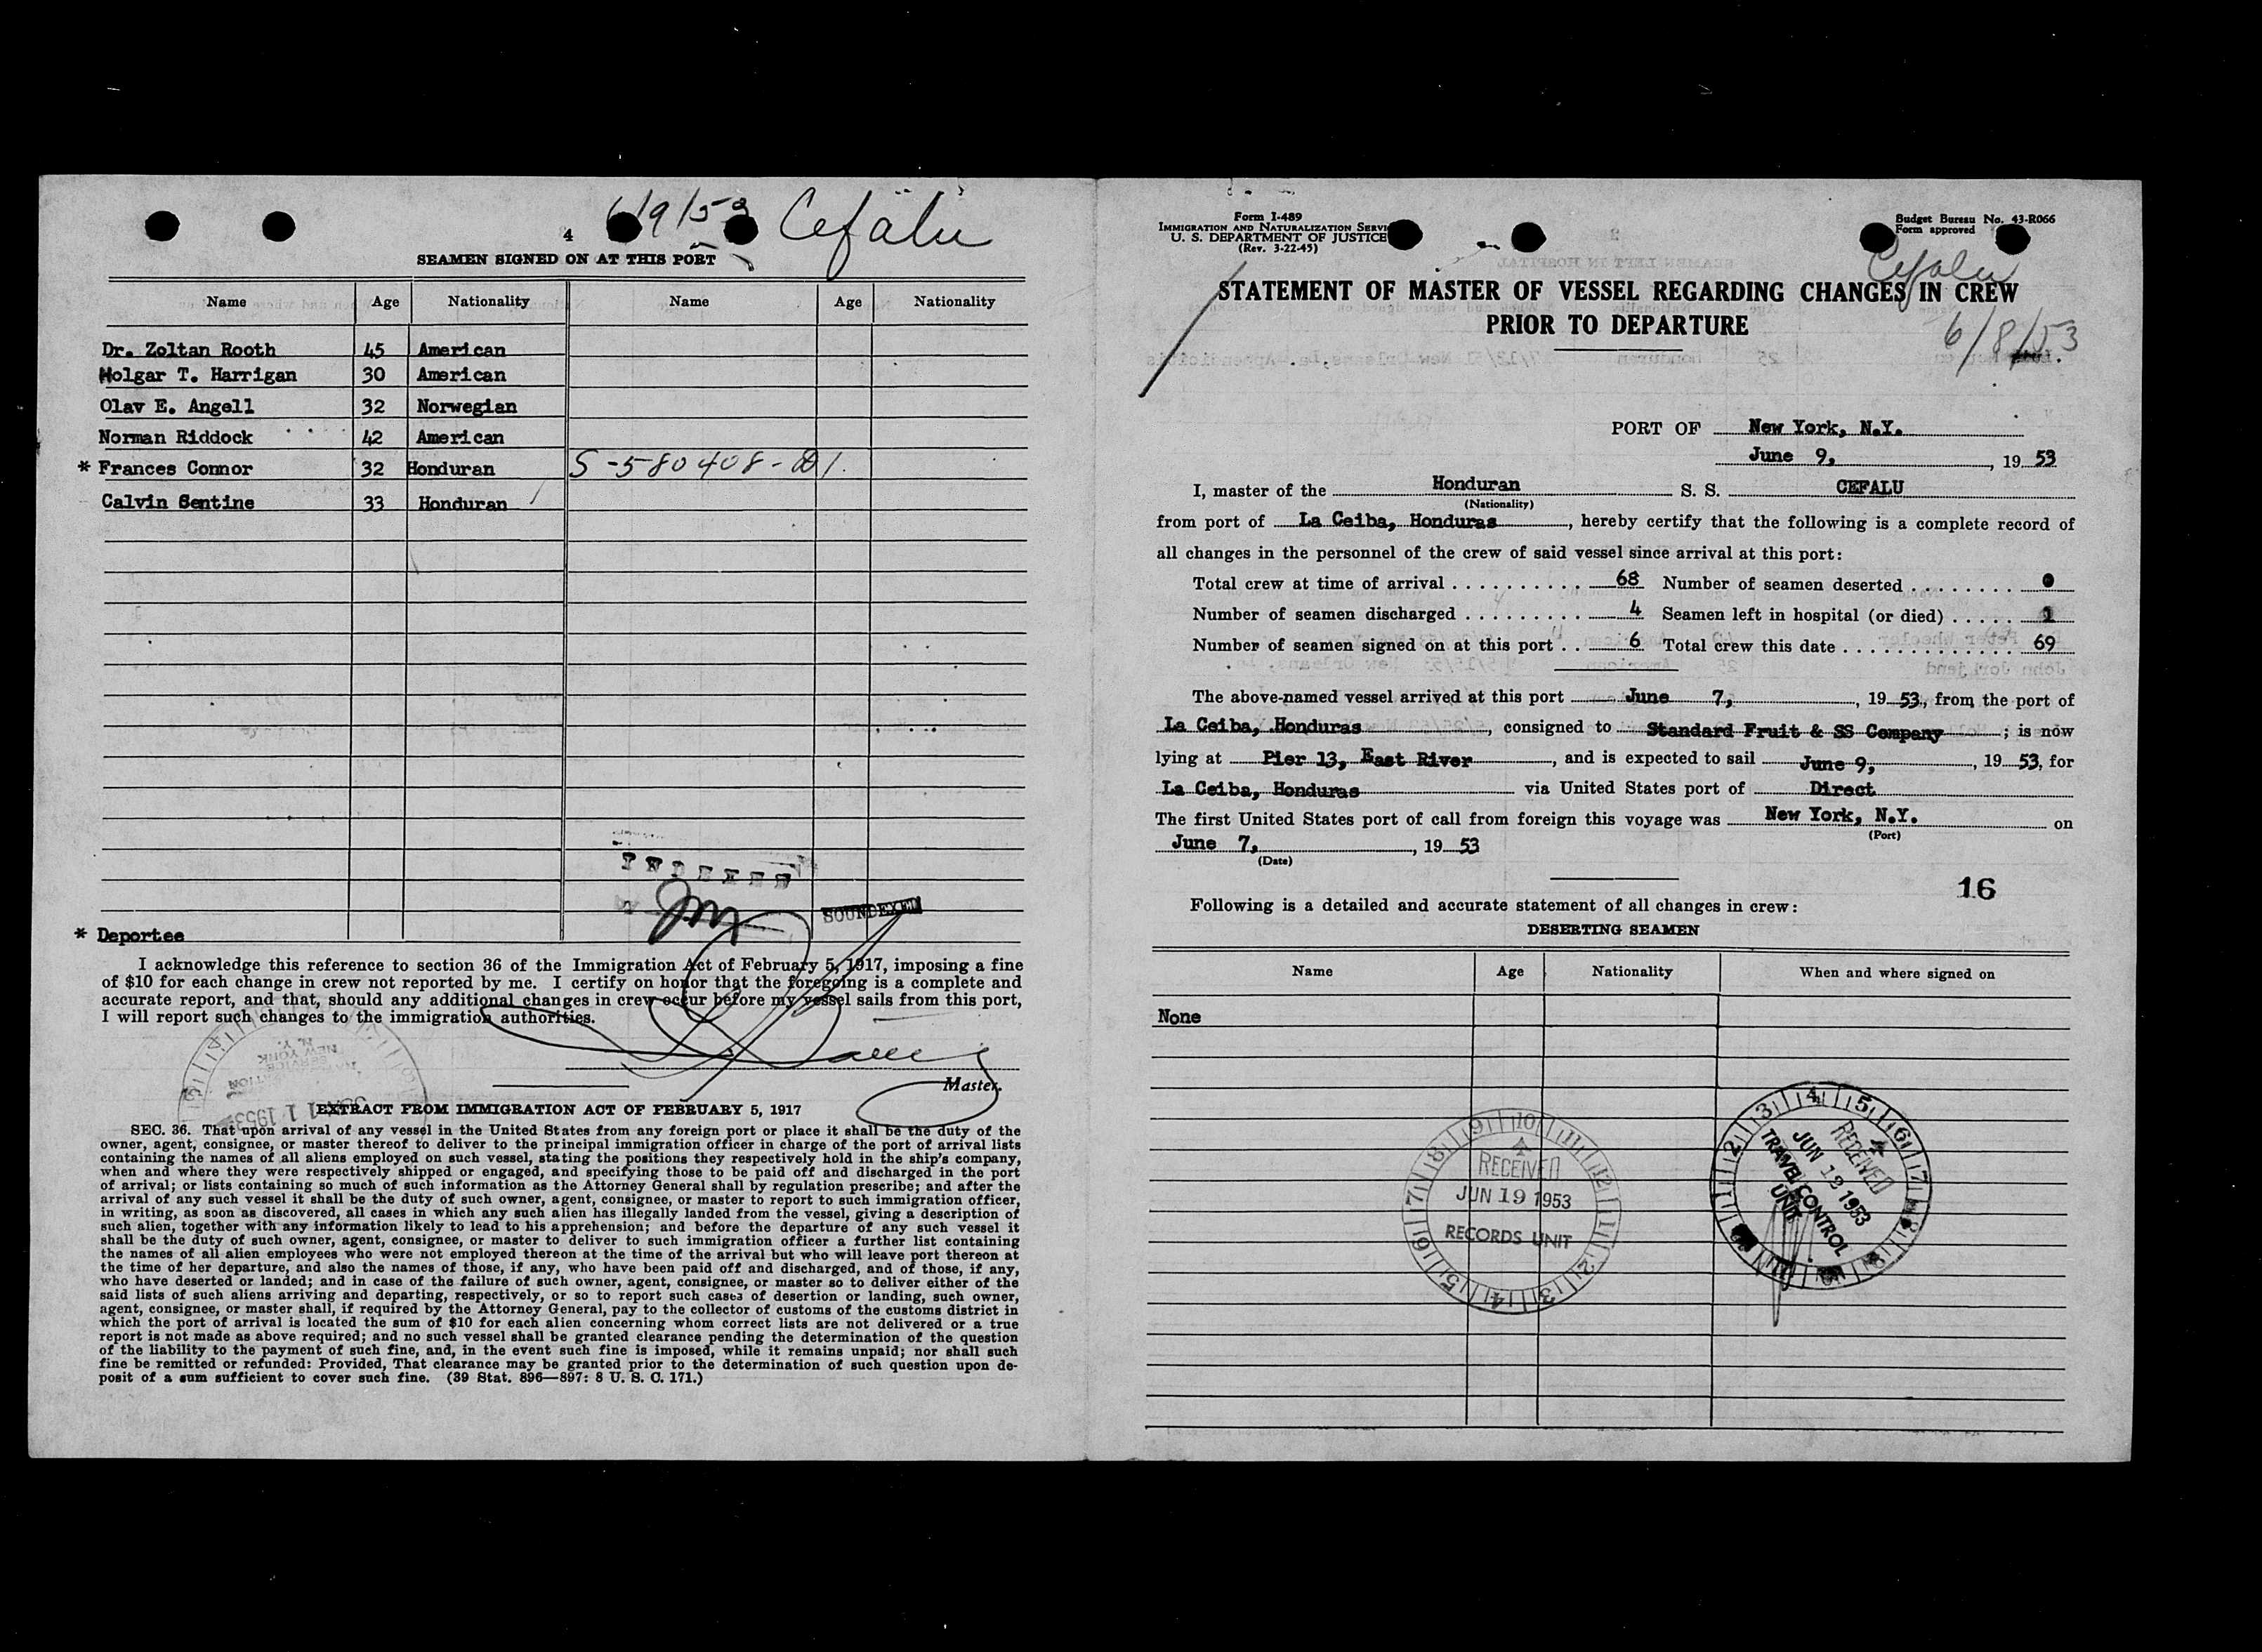 6/9/53 Cefalu
4
SEAMEN SIGNED ON AT THIS PORT
Name Age Nationality Name Age Nationality
Dr. Zoltan Rooth 45 American
Holgar T. Harrigan 30 American
Olav E. Angell 32 Norwegian
Norman Riddock 42 American
* Frances Connor 32 Honduran S-580408-D1.
Calvin Sentine 33 Honduran
INDEXED
SOUNDEXED
* Deportee
I acknowledge this reference to section 36 of the Immigration Act of February 5, 1917, imposing a fine
of $10 for each change in crew not reported by me. I certify on honor that the foregoing is a complete and
accurate report, and that, should any additional changes in crew occur before my vessel sails from this port,
I will report such changes to the immigration authorities.
Master.
EXTRACT FROM IMMIGRATION ACT OF FEBRUARY 5, 1917
SEC. 36. That upon arrival of any vessel in the United States from any foreign port or place it shall be the duty of the
owner, agent, consignee, or master thereof to deliver to the principal immigration officer in charge of the port of arrival lists
containing the names of all aliens employed on such vessel, stating the positions they respectively hold in the ship's company,
when and where they were respectively shipped or engaged, and specifying those to be paid off and discharged in the port
of arrival; or lists containing so much of such information as the Attorney General shall by regulation prescribe; and after the
arrival of any such vessel it shall be the duty of such owner, agent, consignee, or master to report to such immigration officer,
in writing, as soon as discovered, all cases in which any such alien has illegally landed from the vessel, giving a description of
such alien, together with any information likely to lead to his apprehension; and before the departure of any such vessel it
shall be the duty of such owner, agent, consignee, or master to deliver to such immigration officer a further list containing
the names of all alien employees who were not employed thereon at the time of the arrival but who will leave port thereon at
the time of her departure, and also the names of those, if any, who have been paid off and discharged, and of those, if any,
who have deserted or landed; and in case of the failure of such owner, agent, consignee, or master so to deliver either of the
said lists of such aliens arriving and departing, respectively, or so to report such cases of desertion or landing, such owner,
agent, consignee, or master shall, if required by the Attorney General, pay to the collector of customs of the customs district in
which the port of arrival is located the sum of $10 for each alien concerning whom correct lists are not delivered or a true
report is not made as above required; and no such vessel shall be granted clearance pending the determination of the question
of the liability to the payment of such fine, and, in the event such fine is imposed, while it remains unpaid; nor shall such
fine be remitted or refunded: Provided, That clearance may be granted prior to the determination of such question upon de-
posit of a sum sufficient to cover such fine. (39 Stat. 896—897: 8 U. S. C. 171.)
Form I-489
IMMIGRATION AND NATURALIZATION SERVI
U. S. DEPARTMENT OF JUSTICE
(Rev. 3-22-45)
Budget Bureau No. 43-R066
Form approved
Cefalu
STATEMENT OF MASTER OF VESSEL REGARDING CHANGES IN CREW
PRIOR TO DEPARTURE
6/8/53
PORT OF New York, N.Y.
June 9, , 19 53
I, master of the Honduran S. S. CEFALU
(Nationality)
from port of La Ceiba, Honduras , hereby certify that the following is a complete record of
all changes in the personnel of the crew of said vessel since arrival at this port:
Total crew at time of arrival 68 Number of seamen deserted 0
Number of seamen discharged 4 Seamen left in hospital (or died) 1
Number of seamen signed on at this port 6 Total crew this date 69
The above-named vessel arrived at this port June 7, , 19 53, from the port of
La Ceiba, Honduras , consigned to Standard Fruit & SS Company ; is now
lying at Pier 13, East River , and is expected to sail June 9, , 19 53, for
La Ceiba, Honduras via United States port of Direct
The first United States port of call from foreign this voyage was New York, N.Y. on
(Port)
June 7, , 19 53
(Date)
16
Following is a detailed and accurate statement of all changes in crew:
DESERTING SEAMEN
Name Age Nationality When and where signed on
None
RECEIVED
JUN 19 1953
RECORDS UNIT
RECEIVED
JUN 12 1953
TRAVEL CONTROL
UNIT